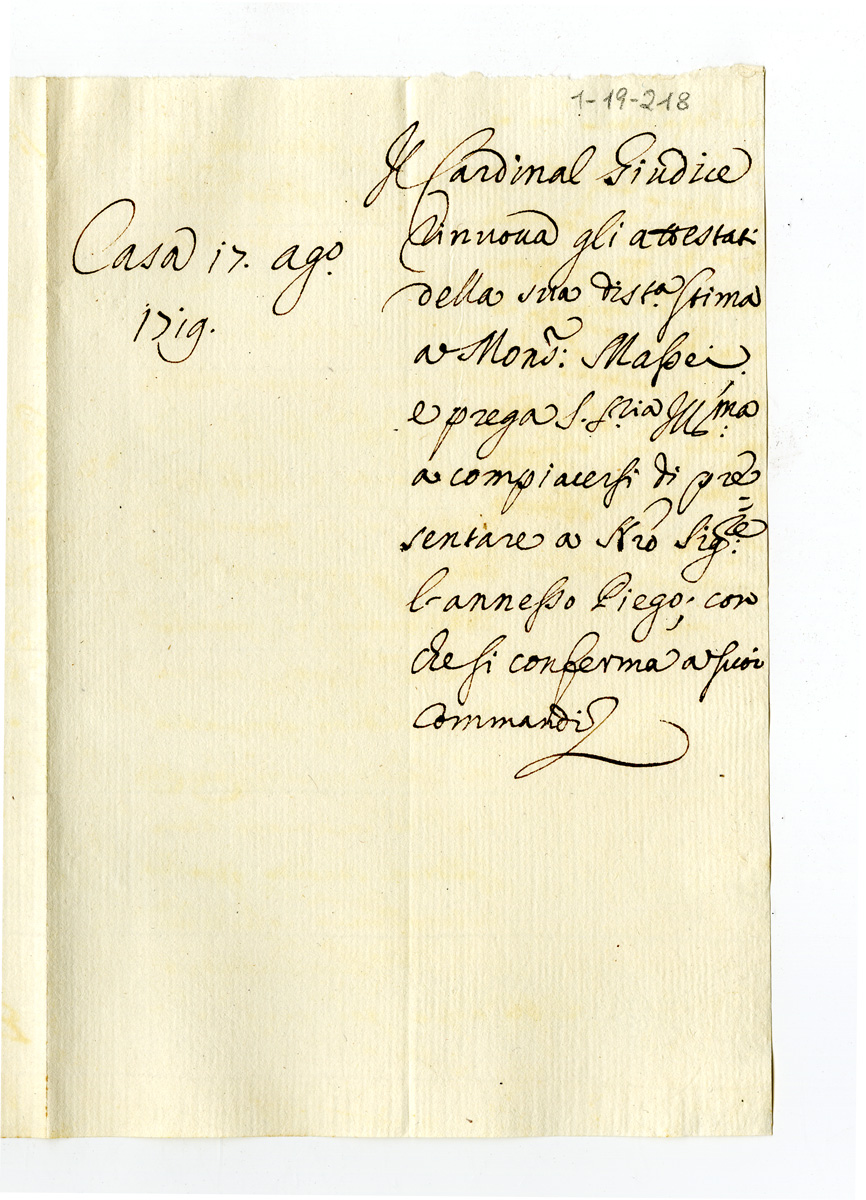 1-19-218
Il Cardinal Giudice
Rinnova gli attestati
della sua dist.ta stima
a Mons.r: Massei
e prega S. S.ria Ill.ma
a compiacersi di pre=
sentare a Nro Sig.re
l'annesso Piego; con
che si conferma a suoi
commandi
Casa 17. ago.
1719.